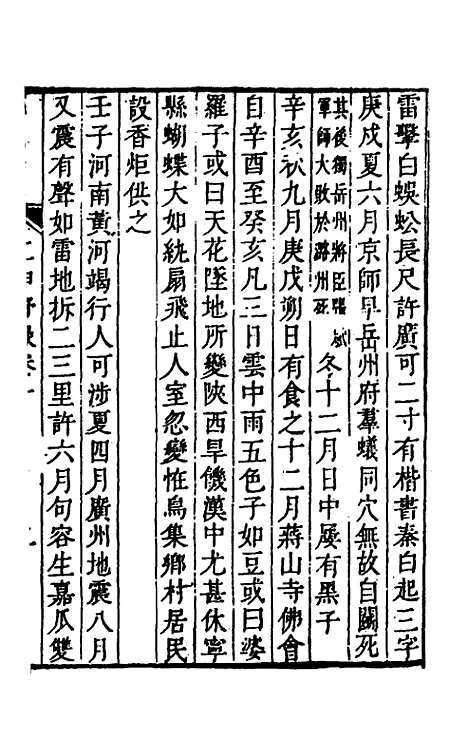 雷擊白蜈蚣長尺許廣可二寸有楷書秦白起三字
庚戌夏六月京師旱岳州府羣蟻同穴無故自鬭死
其後獨岳州將臣張斌
軍師大敗於潞州死
冬十二月日中屢有黑子
辛亥秋九月庚戌朔日有食之十二月蔣山寺佛會
自辛酉至癸亥凡三日雲中雨五色子如豆或曰婆
羅子或曰天花墜地所變陝西旱饑漢中尤甚休寧
縣蝴蝶大如紈扇飛止人室忽變恠鳥集鄉村居民
設香炬供之
壬子河南黃河竭行人可涉夏四月廣州地震八月
又震有聲如雷地拆二三里許六月句容生嘉瓜雙